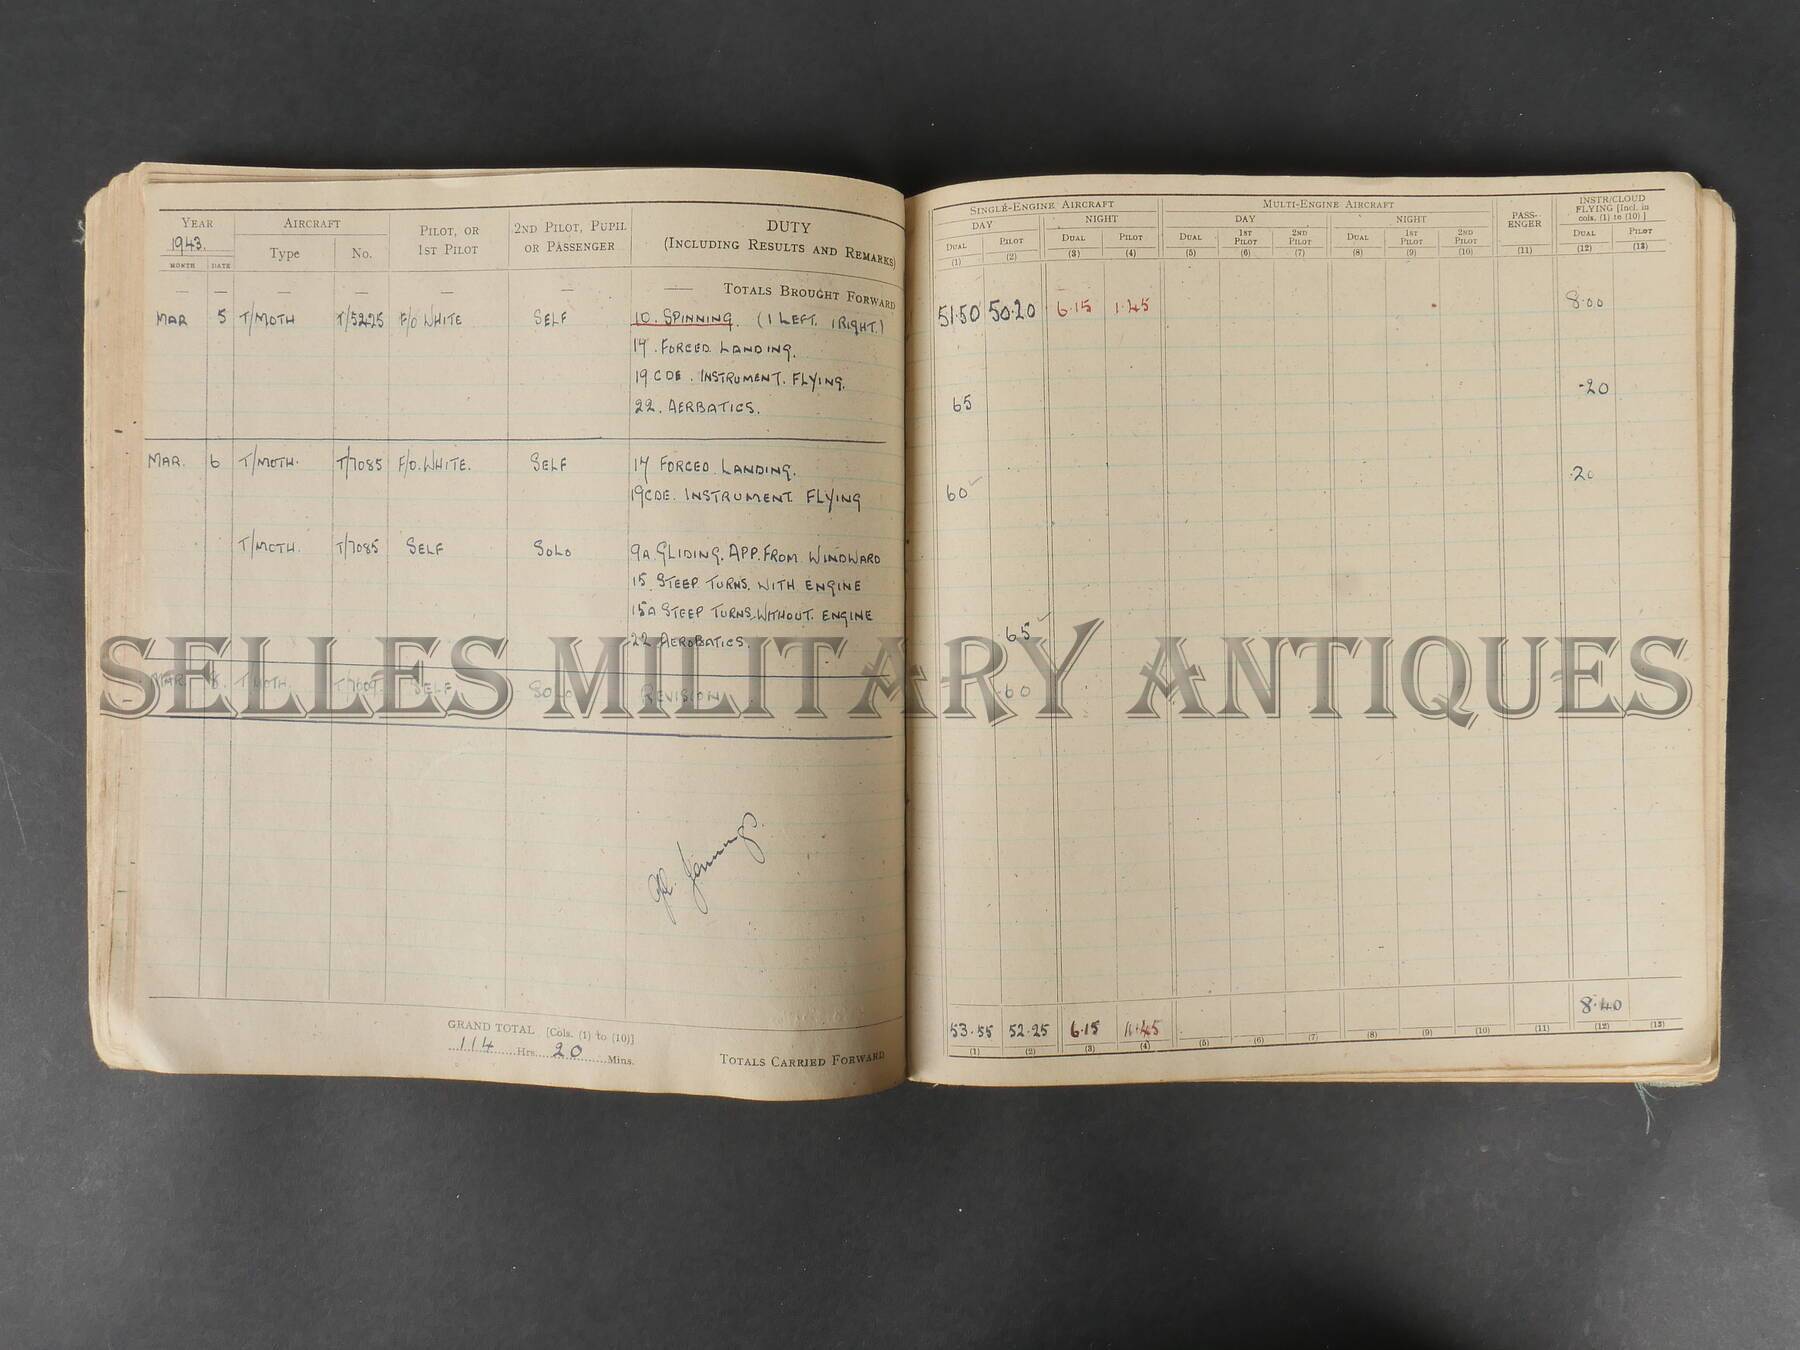 YEAR AIRCRAFT PILOT, OR 2ND PILOT, PUPIL DUTY
1943. Type No. 1ST PILOT OR PASSENGER (INCLUDING RESULTS AND REMARKS)
MONTH DATE
— — — — — — — TOTALS BROUGHT FORWARD
MAR 5 T/MOTH T/5425 F/O WHITE SELF 10. SPINNING. (1 LEFT. 1 RIGHT.)
14. FORCED LANDING.
19 CDE. INSTRUMENT. FLYING.
22. AERBATICS.
MAR. 6 T/MOTH. T/7085 F/O. WHITE. SELF 14 FORCED LANDING.
19CDE. INSTRUMENT FLYING
T/MOTH. T/7085 SELF SOLO 9A. GLIDING. APP. FROM WINDWARD
15. STEEP TURNS. WITH ENGINE
15A STEEP TURNS. WITHOUT ENGINE
22 AEROBATICS.
MAR. 8. T MOTH. SELF SOLO REVISION
Jennings
GRAND TOTAL [Cols. (1) to (10)]
114 Hrs. 20 Mins.
TOTALS CARRIED FORWARD
SINGLE-ENGINE AIRCRAFT MULTI-ENGINE AIRCRAFT PASS-ENGER INSTR/CLOUD FLYING [Incl. in cols. (1) to (10)]
DAY NIGHT DAY NIGHT
DUAL PILOT DUAL PILOT DUAL 1ST PILOT 2ND PILOT DUAL 1ST PILOT 2ND PILOT DUAL PILOT
(1) (2) (3) (4) (5) (6) (7) (8) (9) (10) (11) (12) (13)
51.50 50.20 6.15 1.45 8.00
65 .20
60 .20
65
60
53.55 52.25 6.15 1.45 8.40
(1) (2) (3) (4) (5) (6) (7) (8) (9) (10) (11) (12) (13)
SELLES MILITARY ANTIQUES